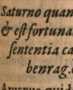 Saturno quan
& est fortuna
sententia ca
benrag.